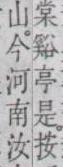 棠谿亭是。按
山。今河南汝